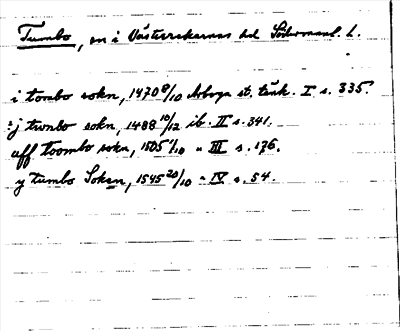 Tumbo, sn i Västerrekarnes hd Södermanl. l.
i tombo sokn, 1470 8/10 Arboga st. tänk. I s. 335.
j tumbo sokn, 1488 10/12 ib. II s. 341.
aff Toombo sokn, 1505 6/10 " III s. 176.
y tumbo Soken, 1545 20/10 " IV s. 54.